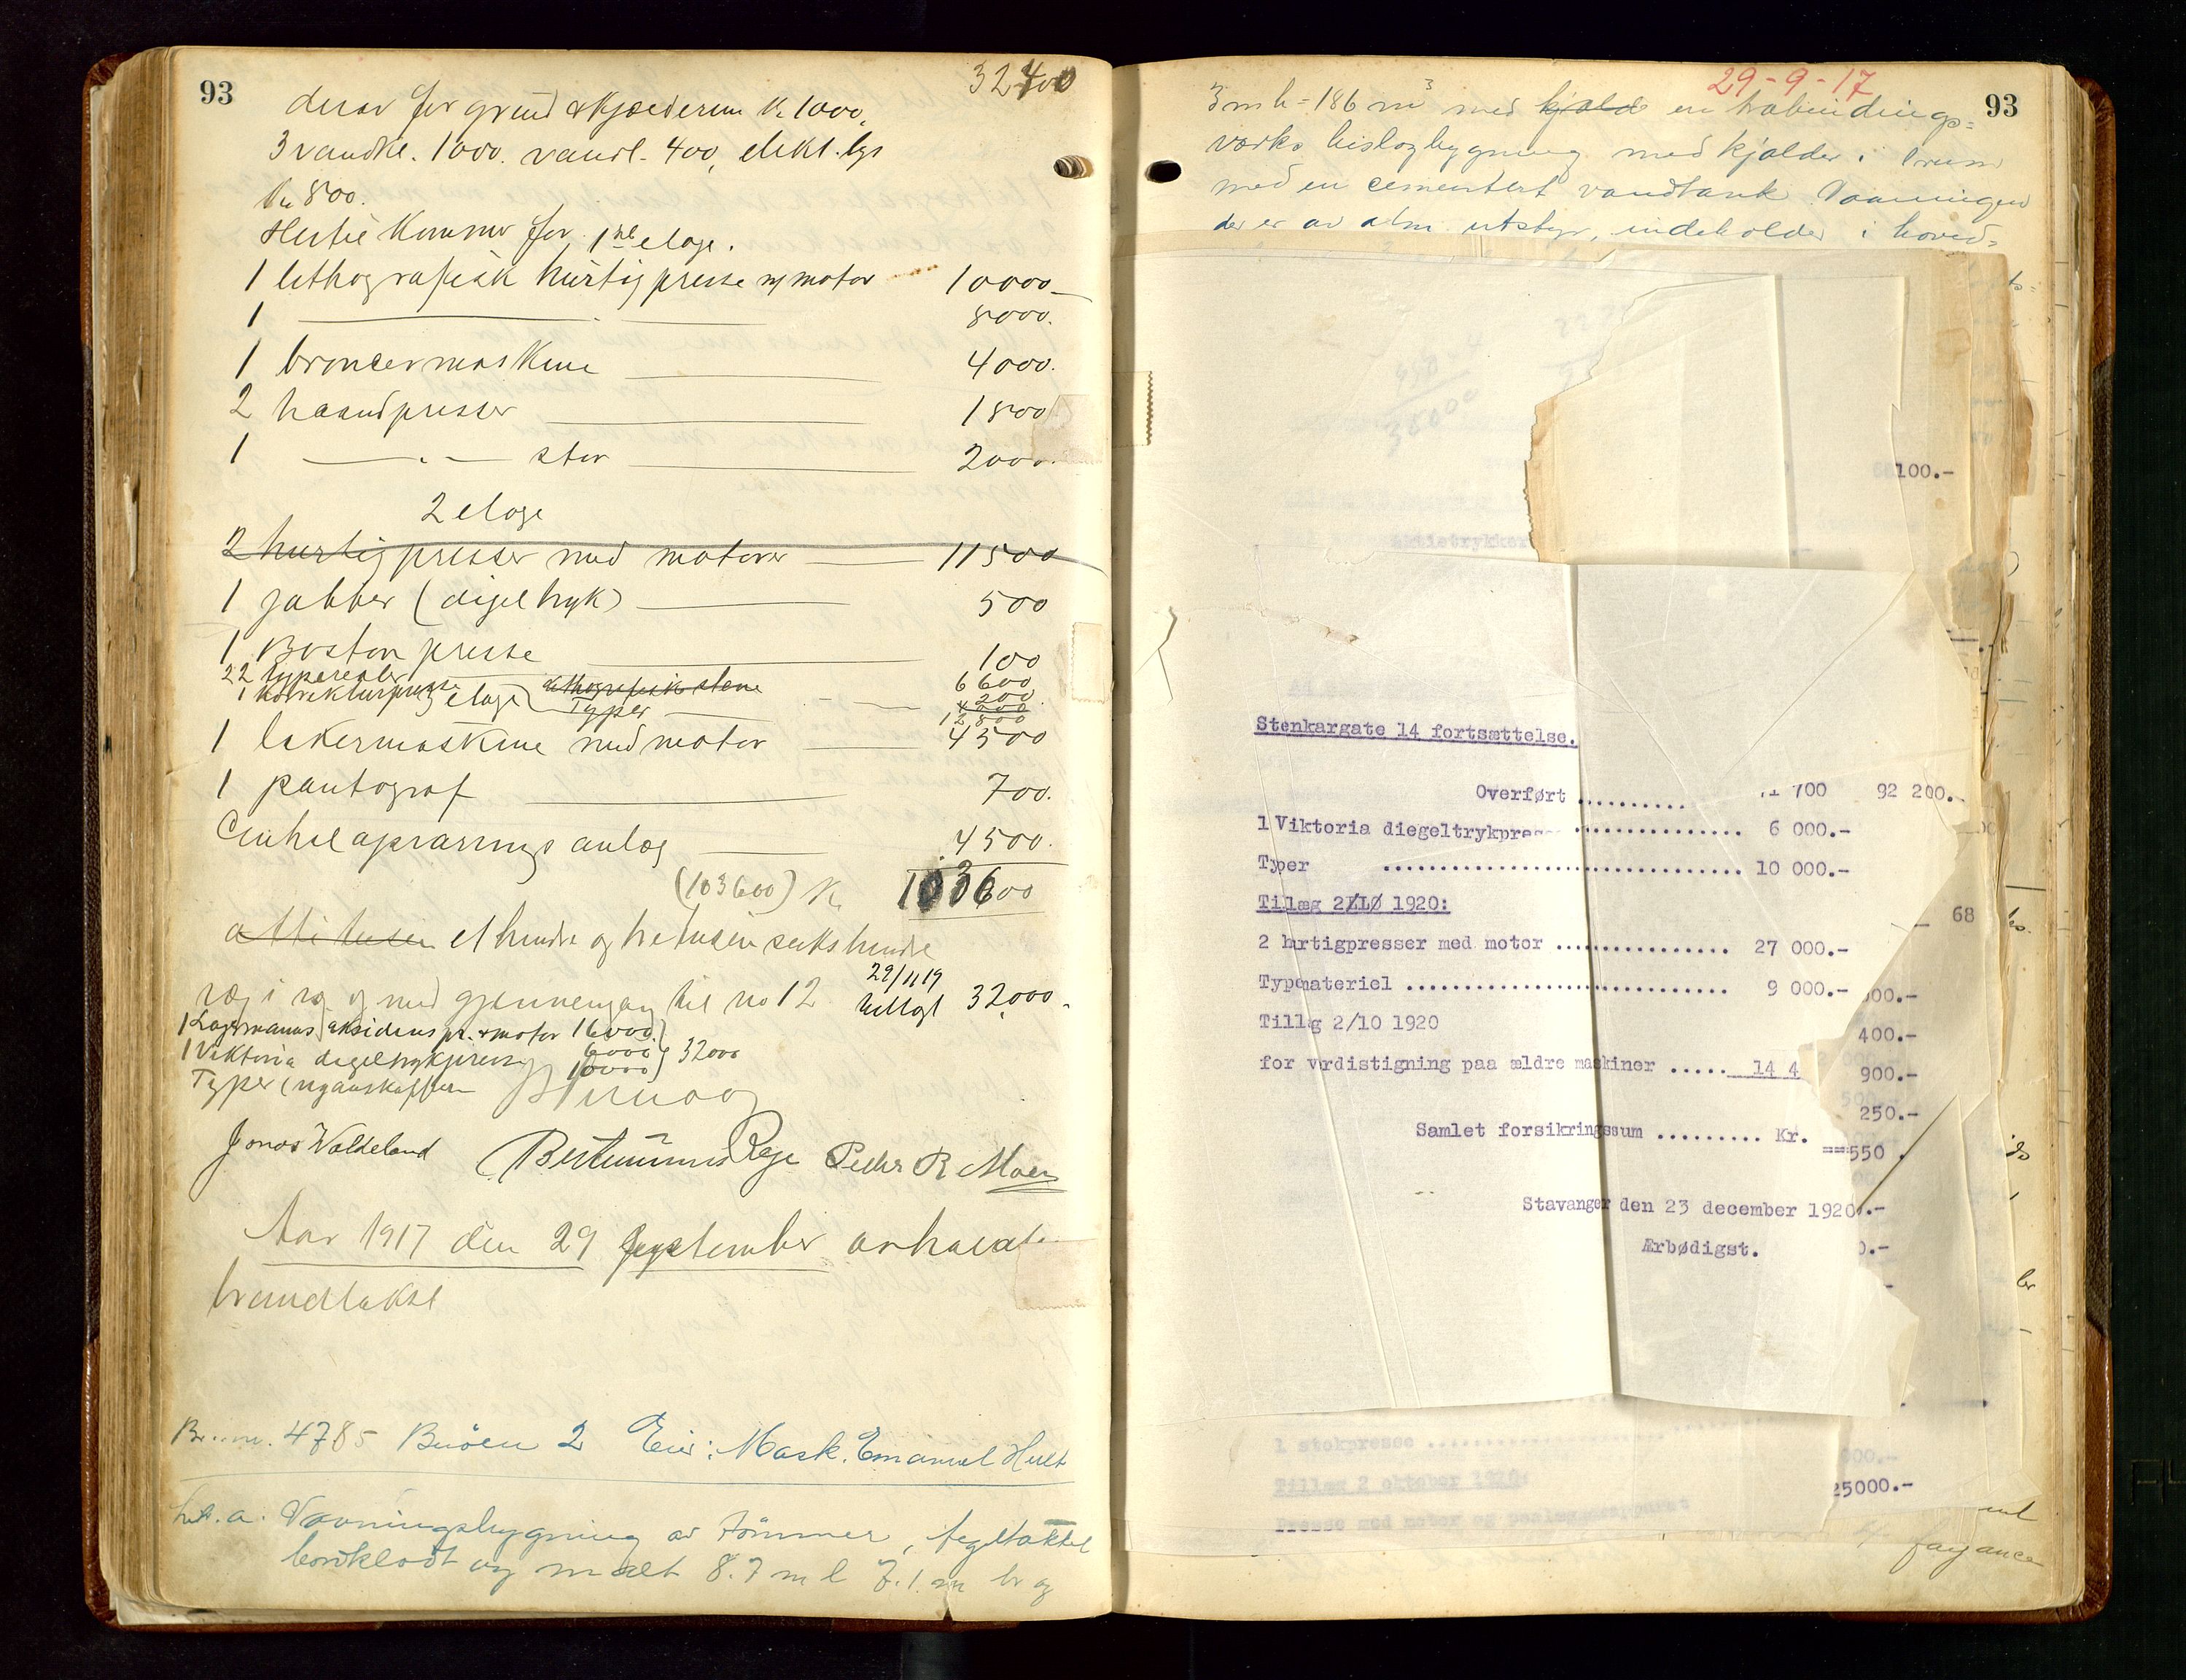 93
32400
derav for grund & kjælderum Kr 1000,
3 vandkl. 1000. vandl. 400, elekt. lys
Kr 800.
Hertil kommer for 1ste etage.
1 lithografisk hurtigpresse m/ motor 10000
1 —— " —— 8000.
1 broncermaskine 4000.
2 haandpresser 1800
1 —— " —— stor 2000.
2 etage
2 hurtigpresser med motorer 11500
1 jabber (digeltryk) 500
1 Boston presse 100
22 typereoler 6600
1 Korrekturpresse 200
etage lithografiske stene 4200
Typer 12,800
1 lakermaskine med motor 4500
1 pantograf 700.
Centralopvarmings anlæg 4500.
(103600) Kr 103600
otti tusen et hundre og tre tusen seks hundre
væg i væg og med gjennemgang til no 12
29/11 19
tillagt 32,000.
1 Lagermanns aksidens pr. & motor 16000
1 Viktoria degeltrykpresse 6000
32000
Typer (nyanskaffelse 10000
Jonas Waldeland Bertinius Rege Peder R Moen
Aar 1917 den 29 september avholdt
brandtakst
Br. nr. 4785 Buöen 2 Eier: Mask. Emanuel Hult
Lit. a. Vaaningsbygning av tömmer, tegltækket
bordklædt og malt 8.7 m l 7.1 m br og
29-9-17
93
3 m h = 186 m³ med kjæld en utbindings=
verks bislagbygning med kjælder i 1 rum
med en cementert vandtank. Vaaningen
der er av alm. utstyr, indeholder i hoved=
100.-
Stenkargate 14 fortsættelse.
Overført .......... 700 92 200.-
1 Viktoria diegeltrykpres ............... 6 000.-
Typer ............................... 10 000.-
Tilæg 2/LØ 1920:
68
2 hurtigpresser med motor ............... 27 000.-
Typemateriel ............................ 9 000.-
00.-
Tillæg 2/10 1920
400.-
for værdistigning paa ældre maskiner ..... 14 4
900.-
250.-
Samlet forsikringssum ......... Kr.
550
Stavanger den 23 december 1920.-
Ærbødigst.
1 stokpresse
000.-
Tillæg 2 oktober 1920:
25000.-
Presse med motor og paalægsapparat
fayance